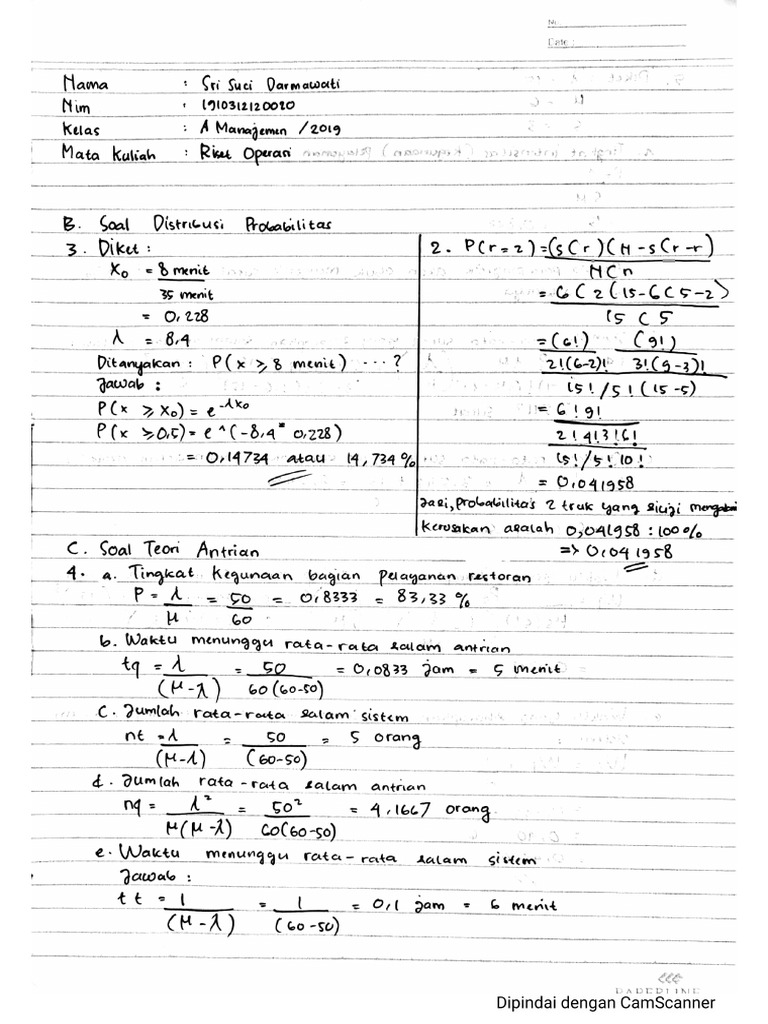 No.
Date :
Nama : Sri Suci Darmawati
Nim : 1910312120020
Kelas : A Manajemen /2019
Mata Kuliah : Riset Operasi
B. Soal Distribusi Probabilitas
3. Diket :
X₀ = 8 menit
35 menit
= 0,228
λ = 8,4
Ditanyakan : P(x ≥ 8 menit) ...?
Jawab :
P(x ≥ X₀) = e^-λx₀
P(x ≥ 0,5) = e^(-8,4 * 0,228)
= 0,14734 atau 14,734 %
2. P(r=2) = (S C r) (N - S C r - r)
N C n
= 6 C 2 (15-6 C 5-2)
15 C 5
= (6!) (9!)
2!(6-2)! 3!(9-3)!
15! / 5! (15-5)
= 6! 9!
2! 4! 3! 6!
15! / 5! 10!
= 0,041958
Jadi, probabilitas 2 truk yang diuji mengalami
kerusakan adalah 0,041958 : 100 %
=> 0.041958
C. Soal Teori Antrian
4. a. Tingkat kegunaan bagian pelayanan restoran
P = λ = 50 = 0,8333 = 83,33 %
μ 60
b. Waktu menunggu rata-rata dalam antrian
tq = λ = 50 = 0,0833 jam = 5 menit
(μ - λ) 60(60-50)
c. Jumlah rata-rata dalam sistem
nt = λ = 50 = 5 orang
(μ-λ) (60-50)
d. Jumlah rata-rata dalam antrian
nq = λ² = 50² = 4,1667 orang
μ(μ-λ) 60(60-50)
e. Waktu menunggu rata-rata dalam sistem
Jawab :
tt = 1 = 1 = 0,1 jam = 6 menit
(μ-λ) (60-50)
PAPERLINE
Dipindai dengan CamScanner